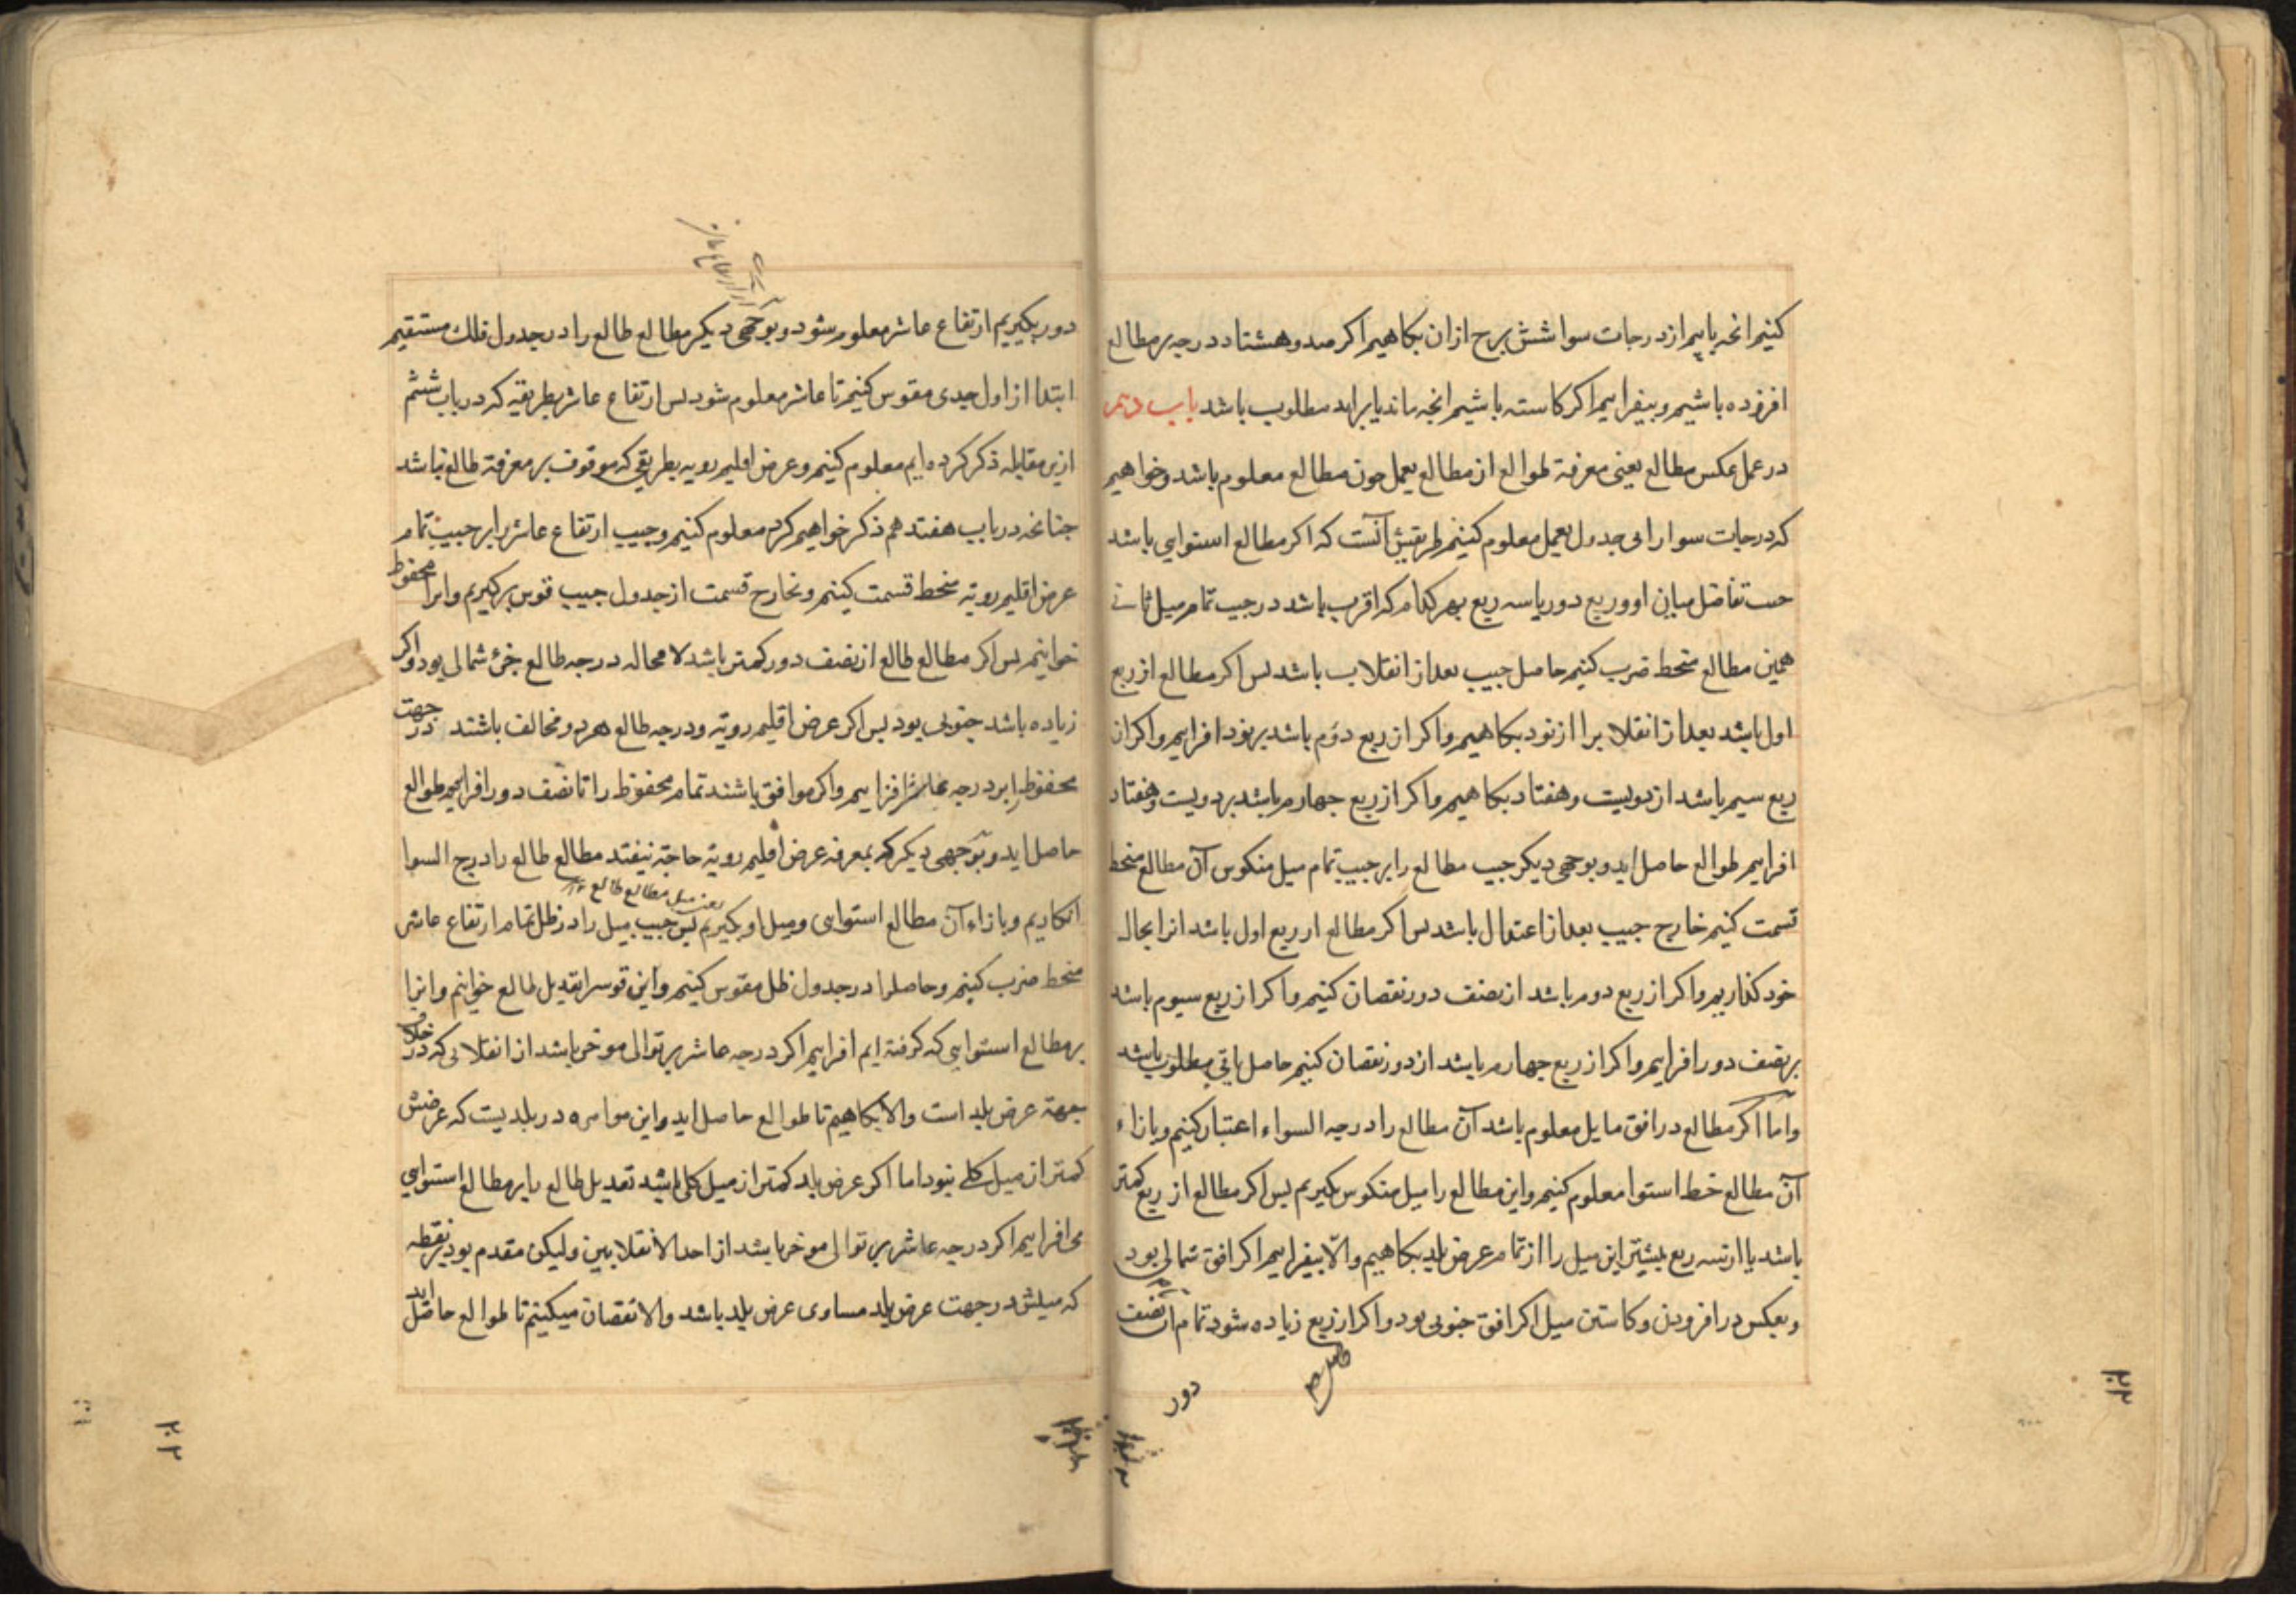 کنیم انچه یابیم از درجات سوا شش برج ازان بکاهیم اکر صد و هشتاد درجه بر مطالع
افزوده باشیم و بیفزاییم اکر کاسته باشیم انچه ماند یا براید مطلوب باشد باب دهم
در عمل عکس مطالع یعنی معرفة طوالع از مطالع بعمل جون مطالع معلوم باشد و خواهیم
که درجات سوا را بی جدول بعمل معلوم کنیم طریقش آنست که اکر مطالع استوایی باشد
جیب تفاضل میان او و ربع دور یا سه ربع بهر کدام که اقرب باشد در جیب تمام میل ثانی
همین مطالع منحط ضرب کنیم حاصل جیب بعد از انقلاب باشد بس اکر مطالع از ربع
اول باشد بعد از انقلاب را از نود بکاهیم و اکر از ربع دوم باشد بر نود افزاییم و اکر از
ربع سیم باشد از دویست و هفتاد بکاهیم و اکر از ربع جهارم باشد بر دویست و هفتاد
افزاییم طوالع حاصل اید و بوجهی دیکر جیب مطالع را بر جیب تمام میل منکوس آن مطالع منحط
قسمت کنیم خارج جیب بعد از اعتدال باشد بس اکر مطالع از ربع اول باشد انرا بحال
خود کذاریم و اکر از ربع دوم باشد از نصف دور نقصان کنیم و اکر از ربع سیوم باشد
بر نصف دور افزاییم و اکر از ربع جهارم باشد از دور نقصان کنیم حاصل یا باقی مطلوب باشد
واما اکر مطالع در افق مایل معلوم باشد آن مطالع را درجه السواء اعتبار کنیم و بازاء
آن مطالع خط استوا معلوم کنیم و این مطالع را میل منکوس بکیریم بس اکر مطالع از ربع کمتر
باشد یا از سه ربع بیشتر این میل را از تمام عرض بلد بکاهیم والا بیفزاییم اکر افق شمالی بود
و بعکس در افزودن و کاستن میل اکر افق جنوبی بود و اکر از ربع زیاده شود تمام آن نصف
دور
۲۰۳
دور بکیریم ارتفاع عاشر معلوم شود و بوجهی دیکر مطالع طالع را در جدول فلک مستقیم
ابتدا از اول جدی مقوس کنیم تا عاشر معلوم شود بس ارتفاع عاشر بطریقه که در باب ششم
ازین مقابله ذکر کرده ایم معلوم کنیم و عرض اقلیم رویه بطریقی که موقوف بر معرفة طالع نباشد
جنانچه در باب هفتدهم ذکر خواهیم کرد معلوم کنیم و جیب ارتفاع عاشر را بر جیب تمام
عرض اقلیم رویة منحط قسمت کنیم و خارج قسمت از جدول جیب قوس بر کیریم و انرا محفوظ
خوانیم بس اکر مطالع طالع از نصف دور کمتر باشد لا محاله درجه طالع جزئ شمالی بود و اکر
زیاده باشد جنوبی بود بس اکر عرض اقلیم رویة و درجه طالع هر دو مخالف باشند در جهت
محفوظ را بر درجه عاشر افزاییم و اکر موافق باشند تمام محفوظ را تا نصف دور افزاییم طوالع
حاصل اید و بوجهی دیکر که بمعرفه عرض اقلیم رویة حاجة نیفتد مطالع طالع را درج السوا
یعنی میل مطالع طالع
انکاریم و بازاء آن مطالع استوایی و میل او بکیریم بس جیب میل را در ظل تمام ارتفاع عاشر
منحط ضرب کنیم و حاصلرا در جدول ظل مقوس کنیم و این قوسرا تعدیل طالع خوانیم و انرا
بر مطالع استوایی که کرفته ایم افزاییم اکر درجه عاشر بر توالی موخر باشد از انقلابی که در خلاف
جهة عرض بلد است والا بکاهیم تا طوالع حاصل اید و این موامره در بلدیست که عرضش
کمتر از میل کلی نبود اما اکر عرض بلد کمتر از میل کلی باشد تعدیل طالع را بر مطالع استوایی
می افزاییم اکر درجه عاشر بر توالی موخر باشد از احد الانقلابین ولیکن مقدم بود بر نقطه
که میلش در جهت عرض بلد مساوی عرض بلد باشد والا نقصان میکنیم تا طوالع حاصل اید
۲۰۲